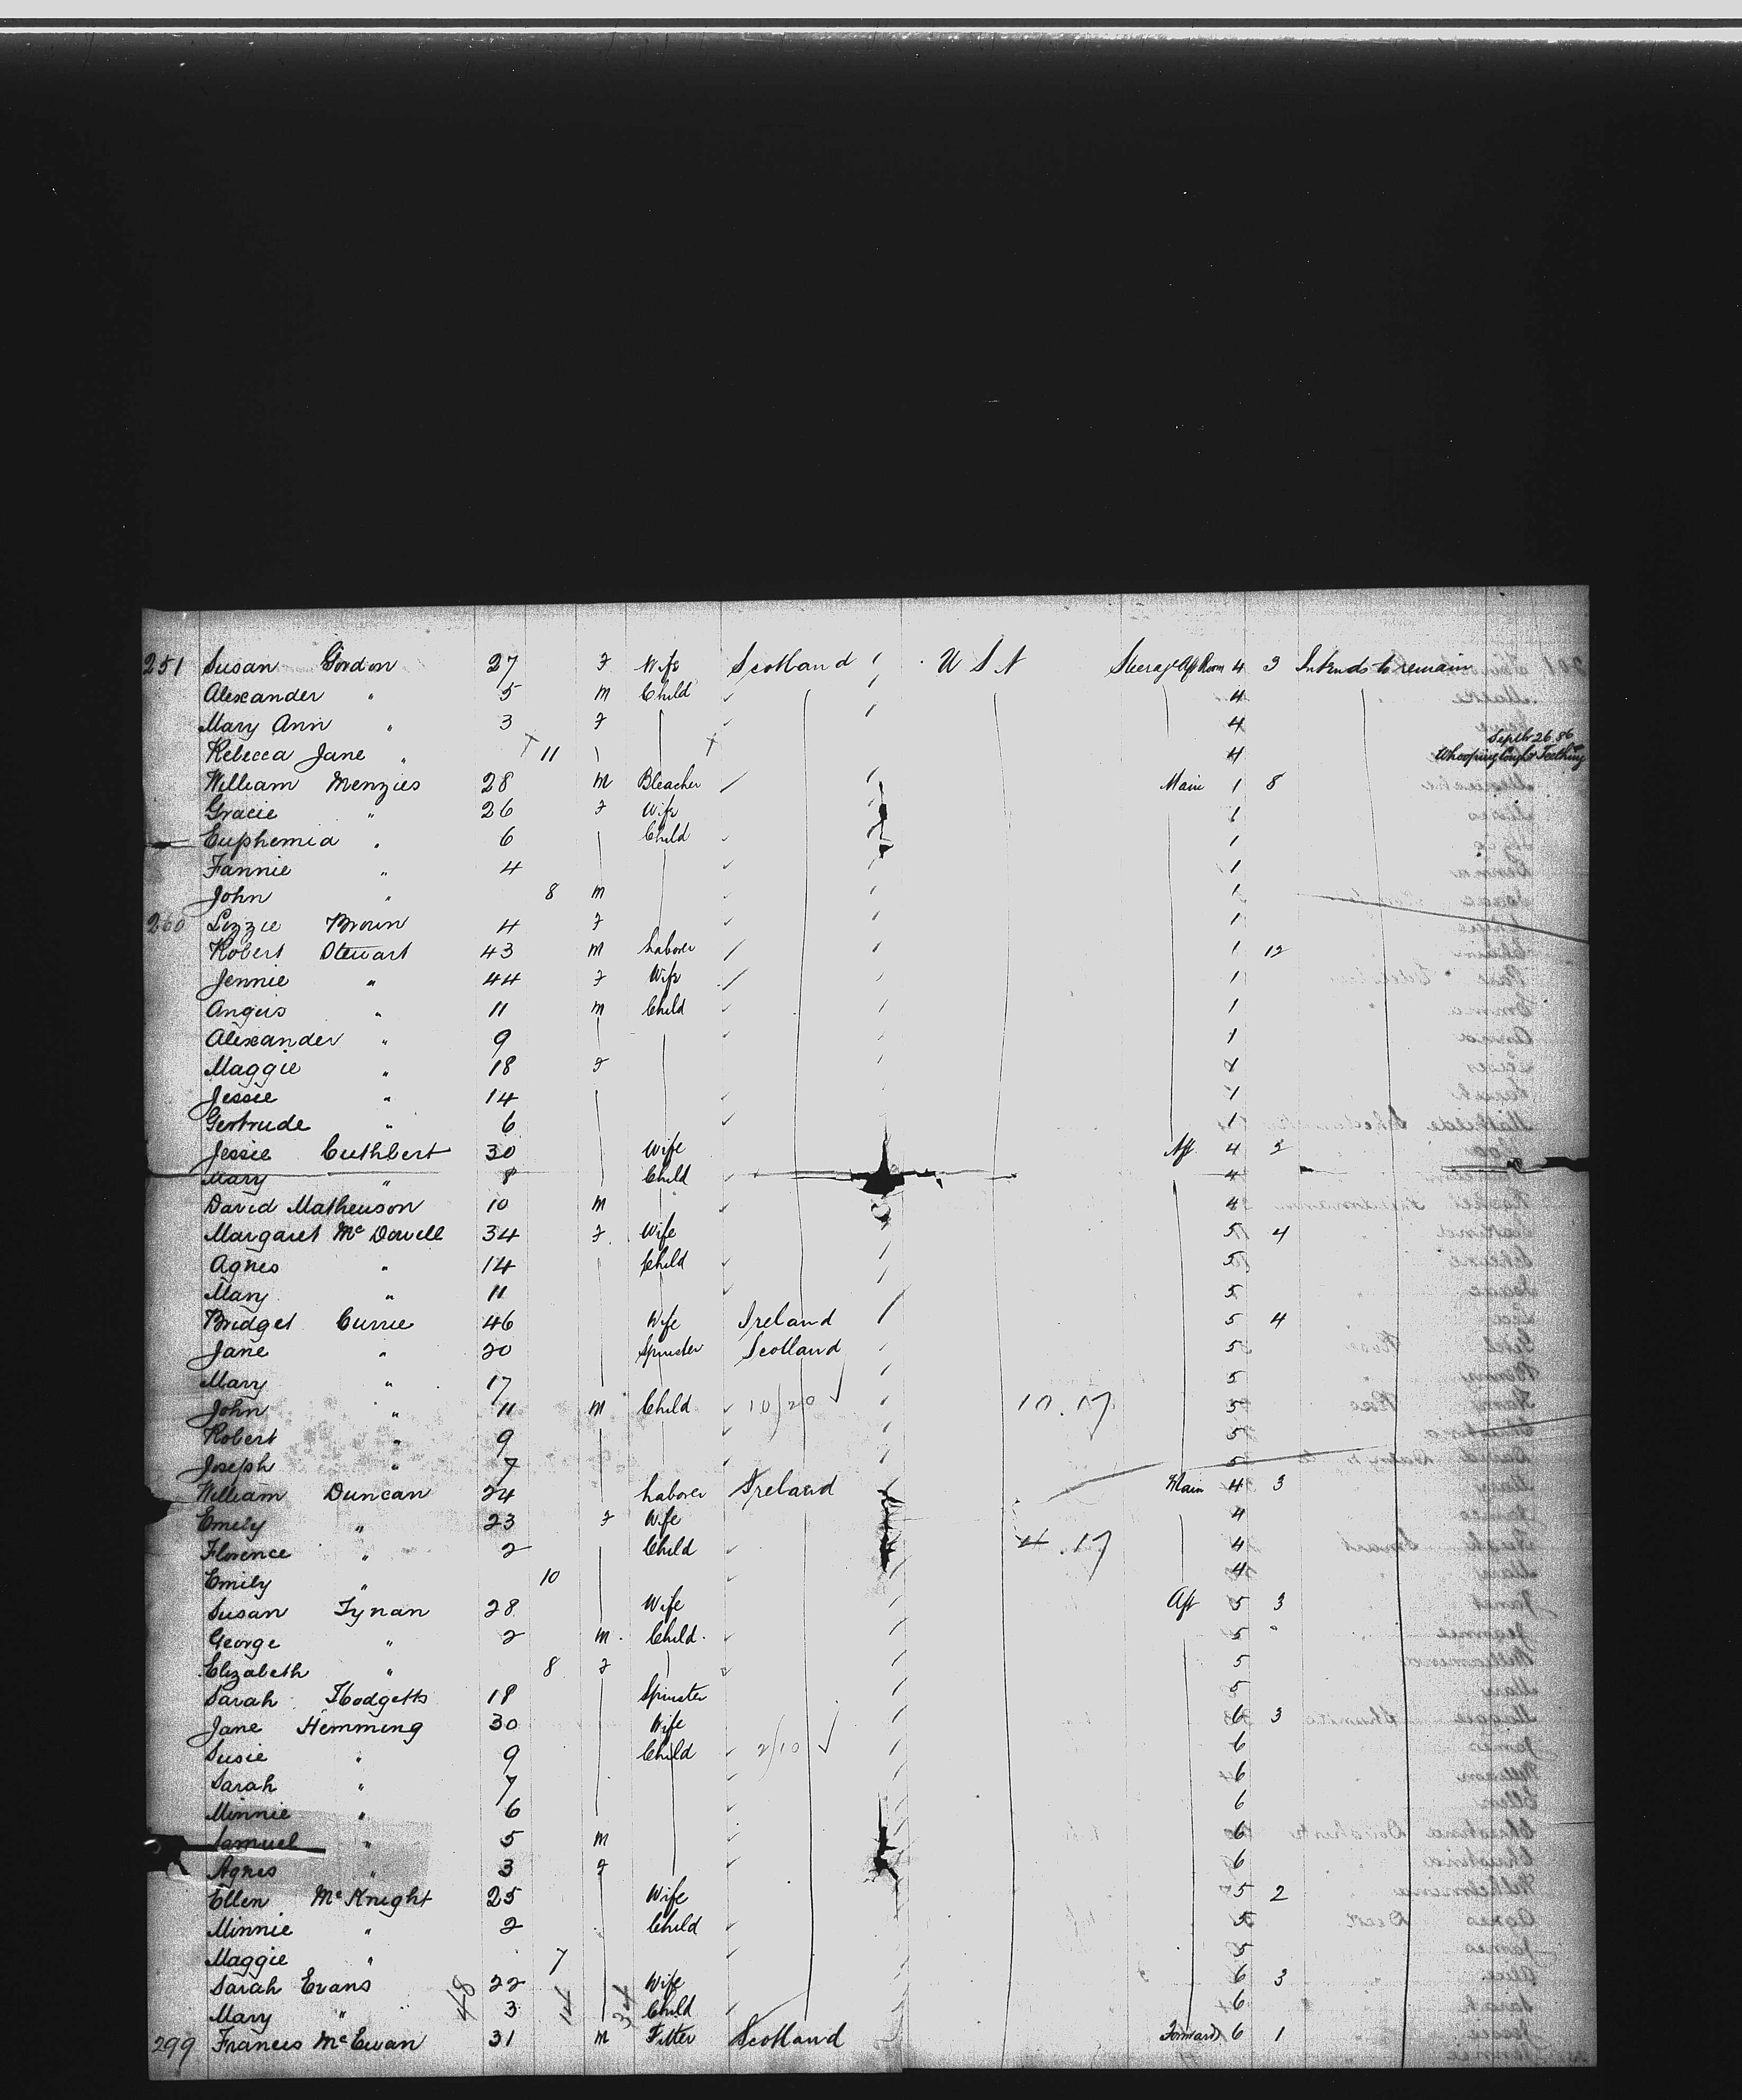 251 Susan Gordon 27 F Wife Scotland U S A Steerage Aft Room 4 3 Intends to remain
Alexander " 5 M Child 4
Mary Ann " 3 F 4
Septr 26. 86
Rebecca Jane " 11 4 Whooping Cough & Teething
William Menzies 28 M Bleacher Main 1 8
Gracie " 26 F Wife 1
Euphemia " 6 Child 1
Fannie " 4 1
John " 8 M 1
260 Lizzie Brown 4 F 1
Robert Stewart 43 M Laborer 1 12
Jennie " 44 F Wife 1
Angus " 11 M Child 1
Alexander " 9 1
Maggie " 18 F 1
Jessie " 14 1
Gertrude " 6 1
Jessie Cuthbert 30 Wife Aft 4 2
Mary " 8 Child 4
David Matheuson 10 M 4
Margaret Mc Dowell 34 F Wife 5 4
Agnes " 14 Child 5
Mary " 11 5
Bridget Currie 46 Wife Ireland 5 4
Jane " 20 Spinster Scotland 5
Mary " 17 5
John " 11 M Child 10/20 10.17 5
Robert " 9 5
Joseph " 7 5
William Duncan 24 Laborer Ireland Main 4 3
Emily " 23 F Wife 4
Florence " 2 Child 4.17 4
Emily " 10 4
Susan Tynan 28 Wife Aft 5 3
George " 2 M Child 5
Elizabeth " 8 F 5
Sarah Hodgetts 18 Spinster 5
Jane Hemming 30 Wife 6 3
Susie " 9 Child 2/10 6
Sarah " 7 6
Minnie " 6 6
Samuel " 5 M 6
Agnes " 3 F 6
Ellen Mc Knight 25 Wife 5 2
Minnie " 2 Child 5
Maggie " 7 5
Sarah Evans 48 22 14 34 Wife 6 3
Mary " 3 Child 6
299 Francis Mc Ewan 31 M Fitter Scotland Forward 6 1